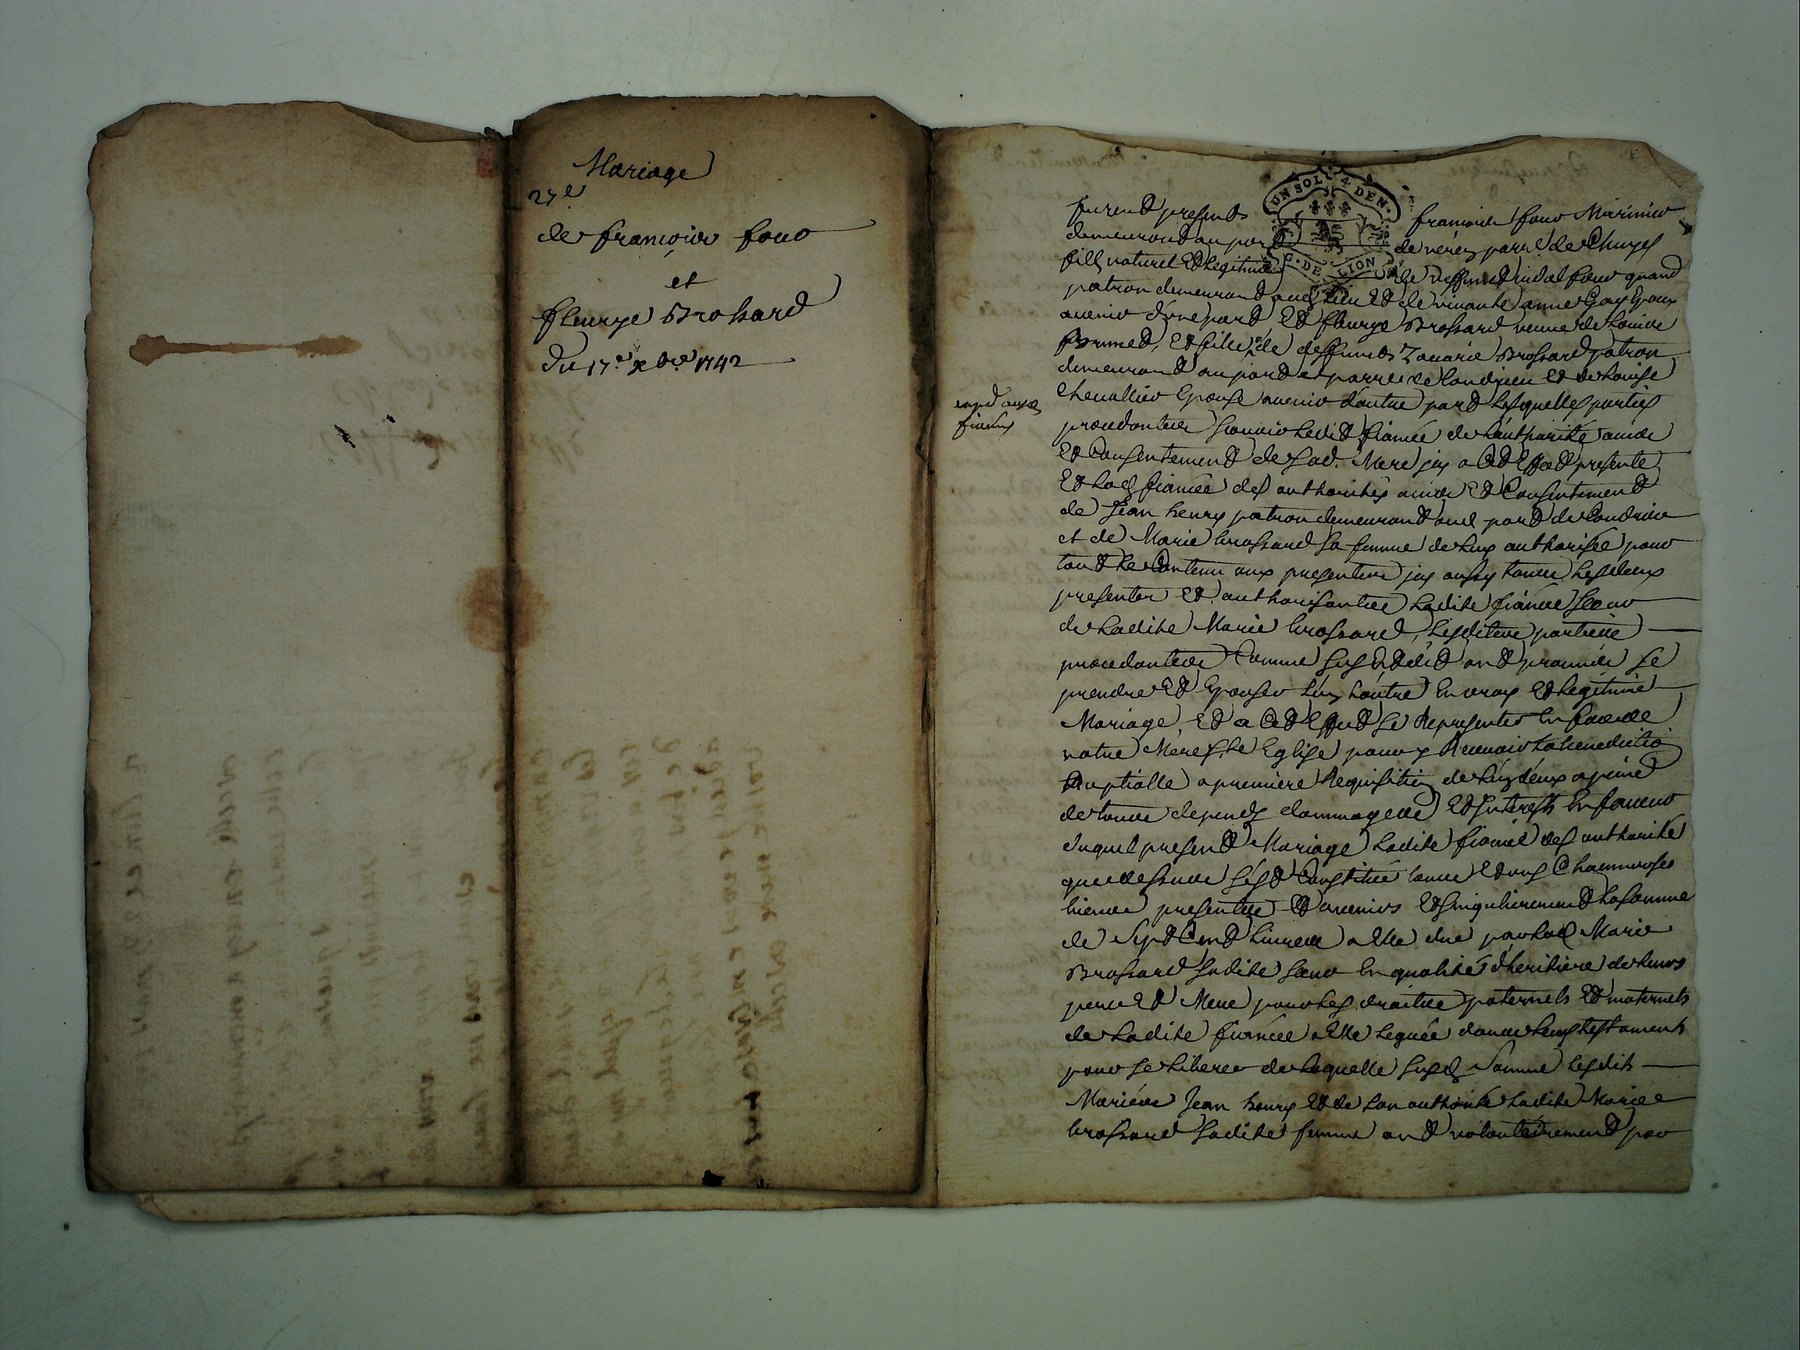 Mariage
27e
de françois four
et
fleurye Brossard
du 17e xbre 1742
UN SOL 4 DEN.
G. DE LION
furent presents françois four Marinier
demeurant au port de verin parre de Chuyes
fils naturel et legitime de deffunt vidal four quand
patron demeurant aud lieu et de vivante anne Gay Epoux
avenir d'une part Et fleurye Brossard veuve de Louis
Brunet, et fille de deffunts Zacarie Brossard patron
demeurant au port et parre de Condrieu et de Louise
Chevallier Epouse avenir d'autre part Lesquelles parties
procedantes sçavoir ledit fiancé de l'authorité avis
Et Consentement de sad. Mere icy a Cet Effet presente
Et lad fiancée des authorités avis Et Consentement
de Jean henry patron demeurant aud port de Condrieu
et de Marie brossard sa femme de luy authorisée pour
tout le Contenu aux presentes icy aussy tous Lesdeux
presents Et authorisants ladite fiancée sœur
de Ladite Marie brossard, Lesdites parties
procedantes Comme sus Est dit ont promis se
prendre Et Epouser l'un L'autre En vray Et legitime
Mariage, Et a Cet Effet se Representer En face de
notre Mere Ste Eglise pour y Recevoir La benedictio
Nuptialle a premiere Requisition de L'un d'eux a peine
de tous depends dommages Et Interests En faveur
duquel present Mariage Ladite fiancée des authorités
que dessus s'est Constitué tous Et uns Chacuns ses
biens presents Et avenirs Et singulierement La somme
de Sept Cent Livres a Elle due par lad Marie
Brossard sadite sœur En qualité d'heritiere de leurs
pere Et Mere pour les droits paternels Et maternels
de Ladite fiancée a Elle leguée dans leurs testaments
pour se liberer de laquelle susd Somme lesdits
Mariés Jean henry Et de son authorité Ladite Marie
brossard sadite femme ont volontairement pour